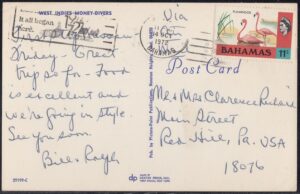 WEST INDIES MONEY-DIVERS
Via
It all began
here.
1972
BAHAMAS
FLAMINGOS
BAHAMAS 11c
Friday - Great
trip so far - Food
is excellent and
we're going in style.
See you soon.
Bill & Ralph
Post Card
Mr & Mrs Clarence
Main Street
Red Hill, Pa. USA
18076
dp